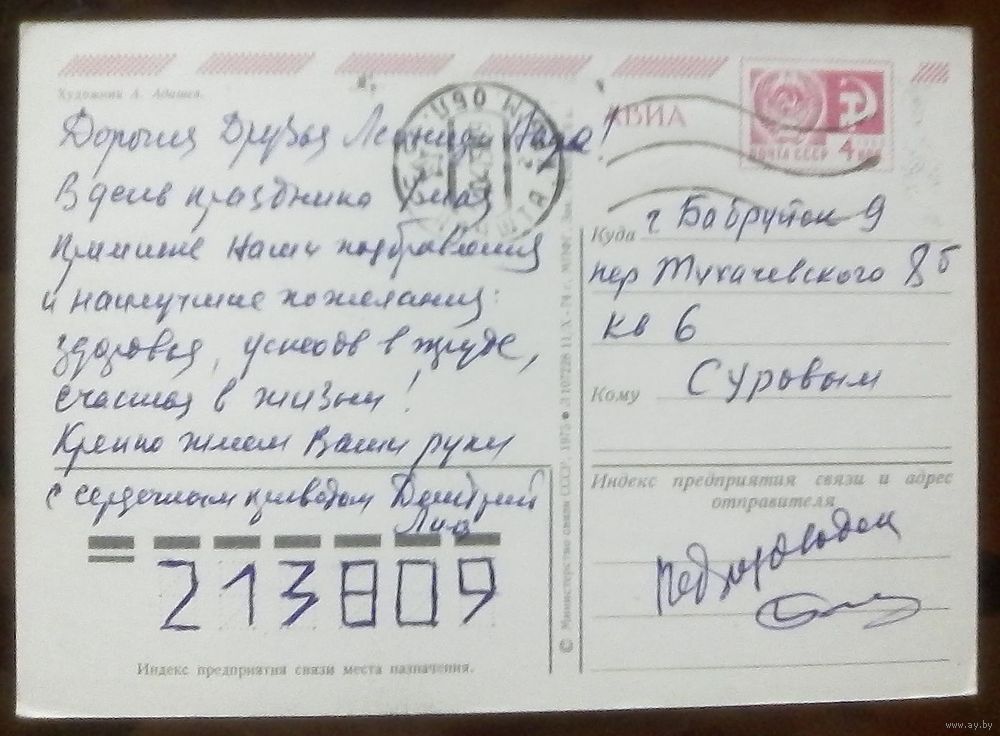 Художник А. Адашев.
Дорогия Друзья Леонид и Надя!
В день праздника Мая
примите Наши поздравления
и наилучшие пожелания:
здоровья, успехов в труде,
счастья в жизни!
Крепко жмем Ваши руки
с сердечным приветом Дмитрий
Лида
213809
Индекс предприятия связи места назначения.
© Министерство связи СССР. 1975
АВИА
ПОЧТА СССР 4 коп
Куда г Бабруйск 9
пер Тухачевского 8б
кв 6
Кому Суровым
Индекс предприятия связи и адрес
отправителя
www.ay.by